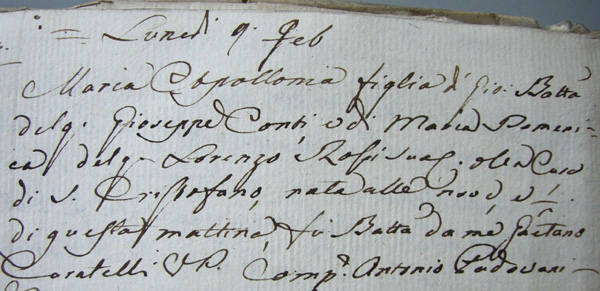 := Lunedì 9. Feb
Maria Apollonia figlia di Gio: Batta
del q. Giuseppe Conti, e di Maria Domeni-
ca del q. Lorenzo Rosi sua
di S. Cristofano, nata alle nove, e ½.
di questa mattina fu Batta da me Gaetano
Coratelli Comp.e Antonio Padovani-